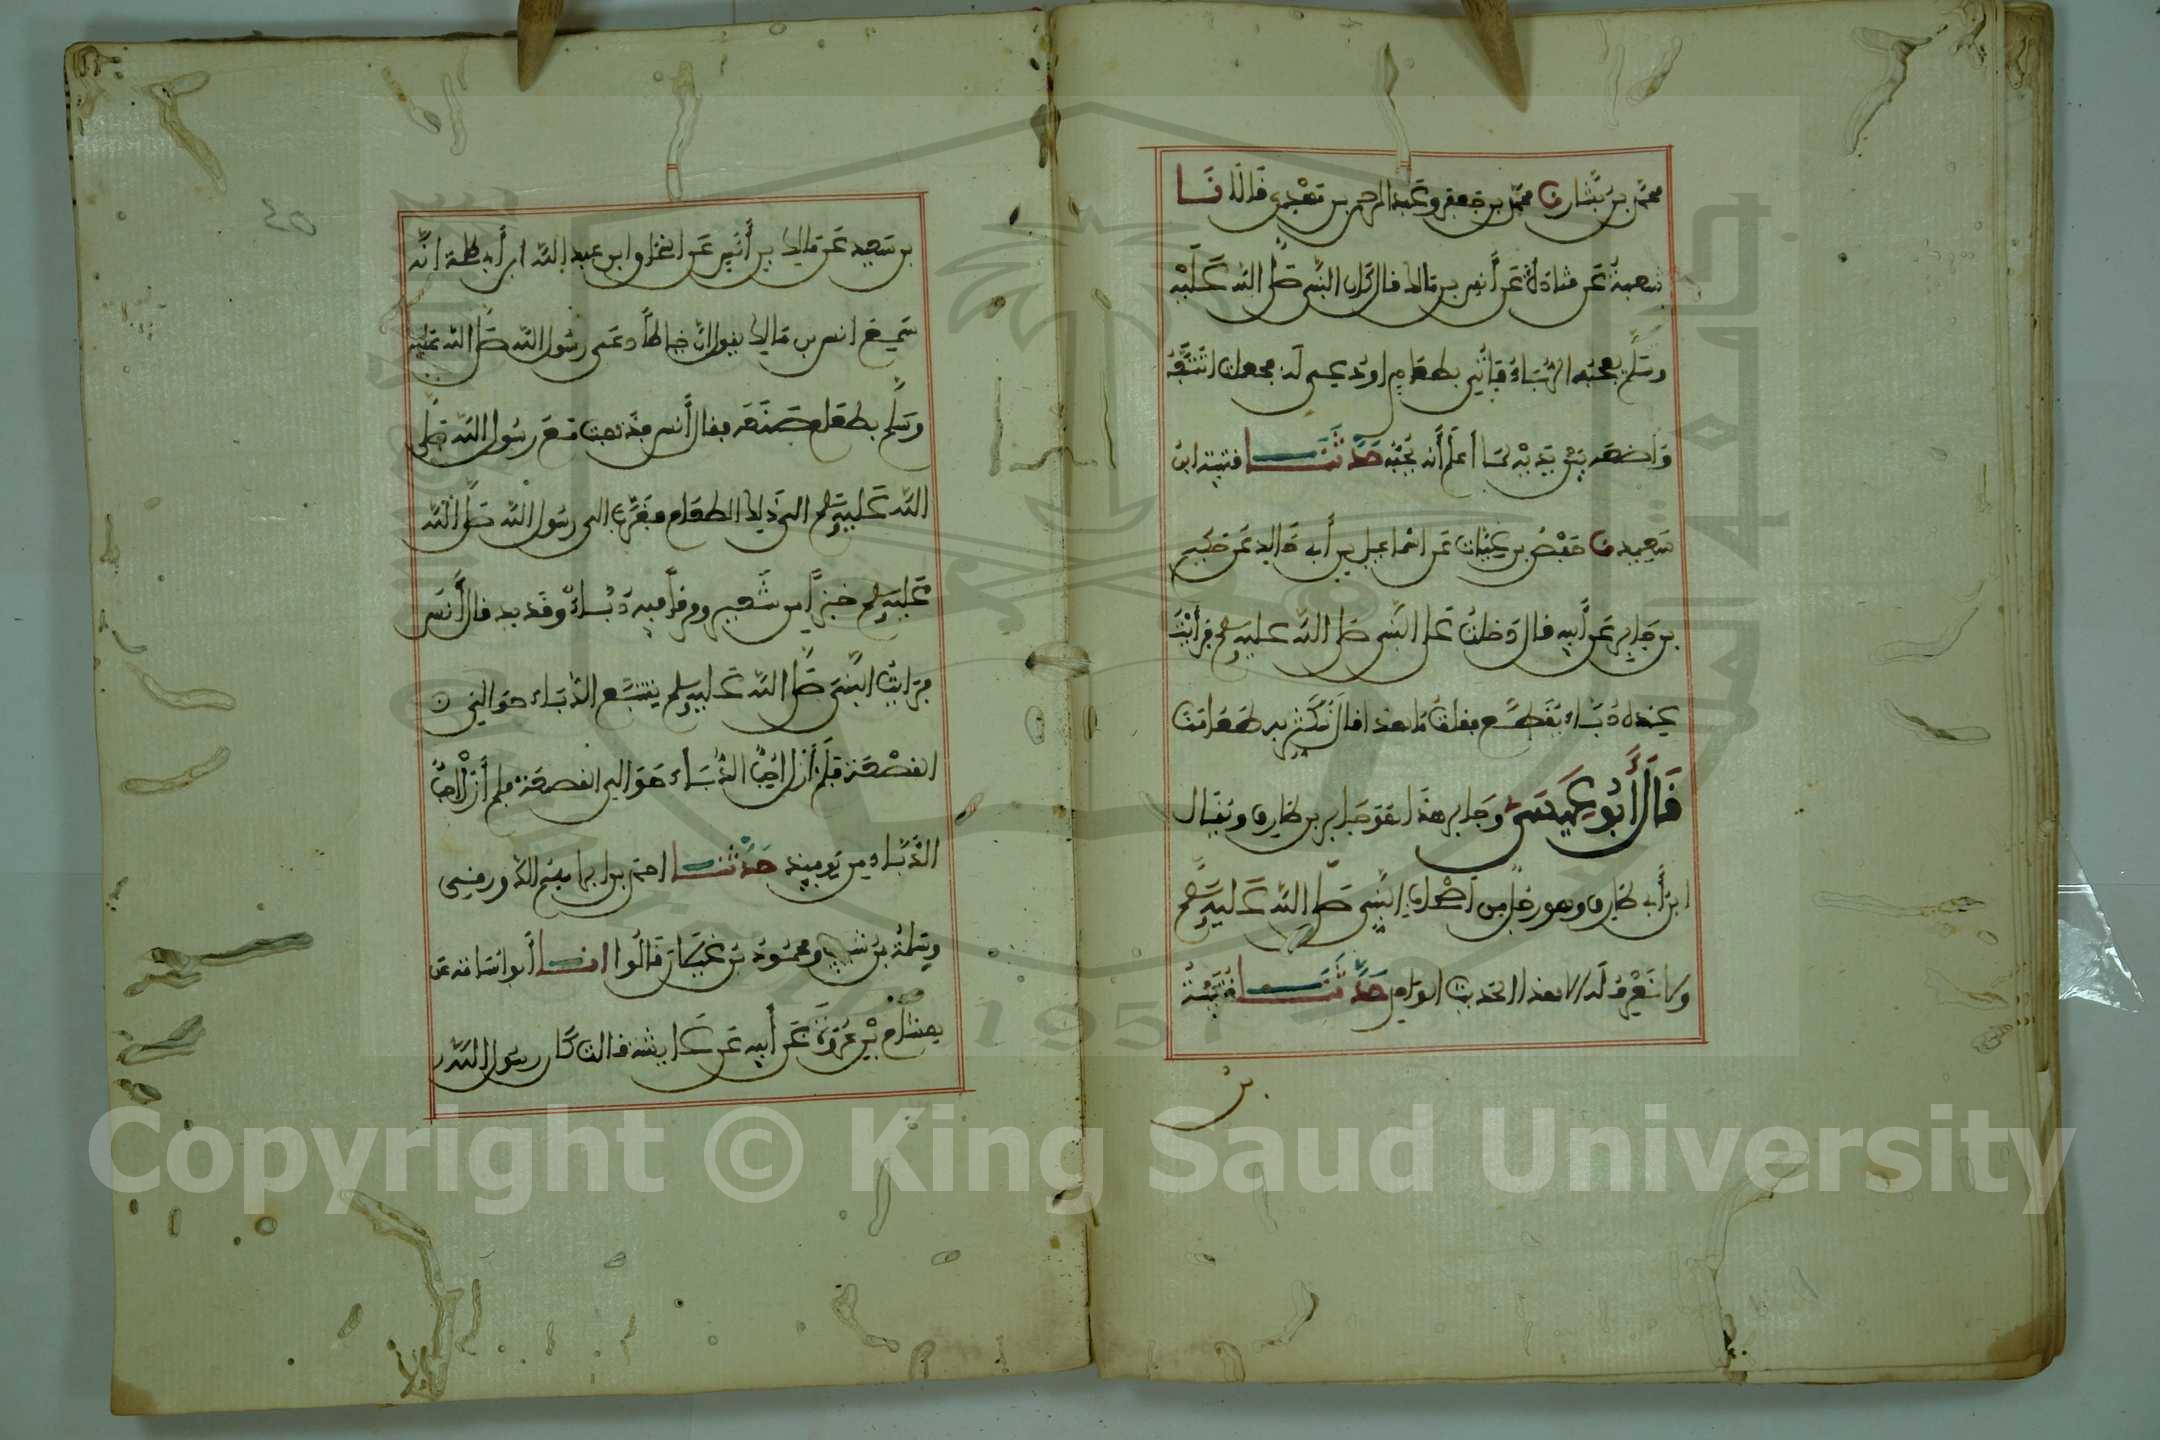 محمد بن بشار نا محمد بن جعفر وعبد الرحمن بن مهدي قالا نا
شعبة عن قتادة عن أنس بن مالك قال كان النبي صلى الله عليه
وسلم يعجبه الدباء فأتي بطعام أو دعي له فجعلت أتتبعه
وأضعه بين يديه لما أعلم أنه يحبه حدثنا قتيبة ابن
سعيد نا حفص بن غياث عن اسماعيل بن أبي خالد عن حكيم
بن جابر عن أبيه قال دخلت على النبي صلى الله عليه وسلم فرأيت
عنده دباء يقطع فقلت ما هذا قال نكثر به طعامنا
قال أبو عيسى وجابر هذا هو جابر بن طارق ويقال
ابن أبي طارق وهو رجل من أصحاب النبي صلى الله عليه وسلم
ولا نعرف له إلا هذا الحديث الواحد حدثنا قتيبة
بن
بن سعيد عن مالك بن أنس عن اسحاق ابن عبد الله ابن أبي طلحة انه
سمع انس بن مالك يقول ان خياطا دعى رسول الله صلى الله عليه
وسلم بطعام صنعه فقال أنس فذهبت مع رسول الله صلى
الله عليه وسلم الى ذلك الطعام فقرب الى رسول الله صلى الله
عليه وسلم خبزا من شعير ومرقا فيه دباء وقديد قال أنس
فرايت النبي صلى الله عليه وسلم يتتبع الدباء حوالي
القصعة فلم أزل احب الدباء حوالي القصعة فلم أزل احب
الدباء من يوميذ حدثنا احمد بن ابراهيم الدورقي
وسلمة بن شبيب ومحمود بن غيلان قالوا انا أبو اسامة عن
هشام بن عروة عن أبيه عن عايشة قالت كان رسول الله
٤٥
Copyright © King Saud University
1957